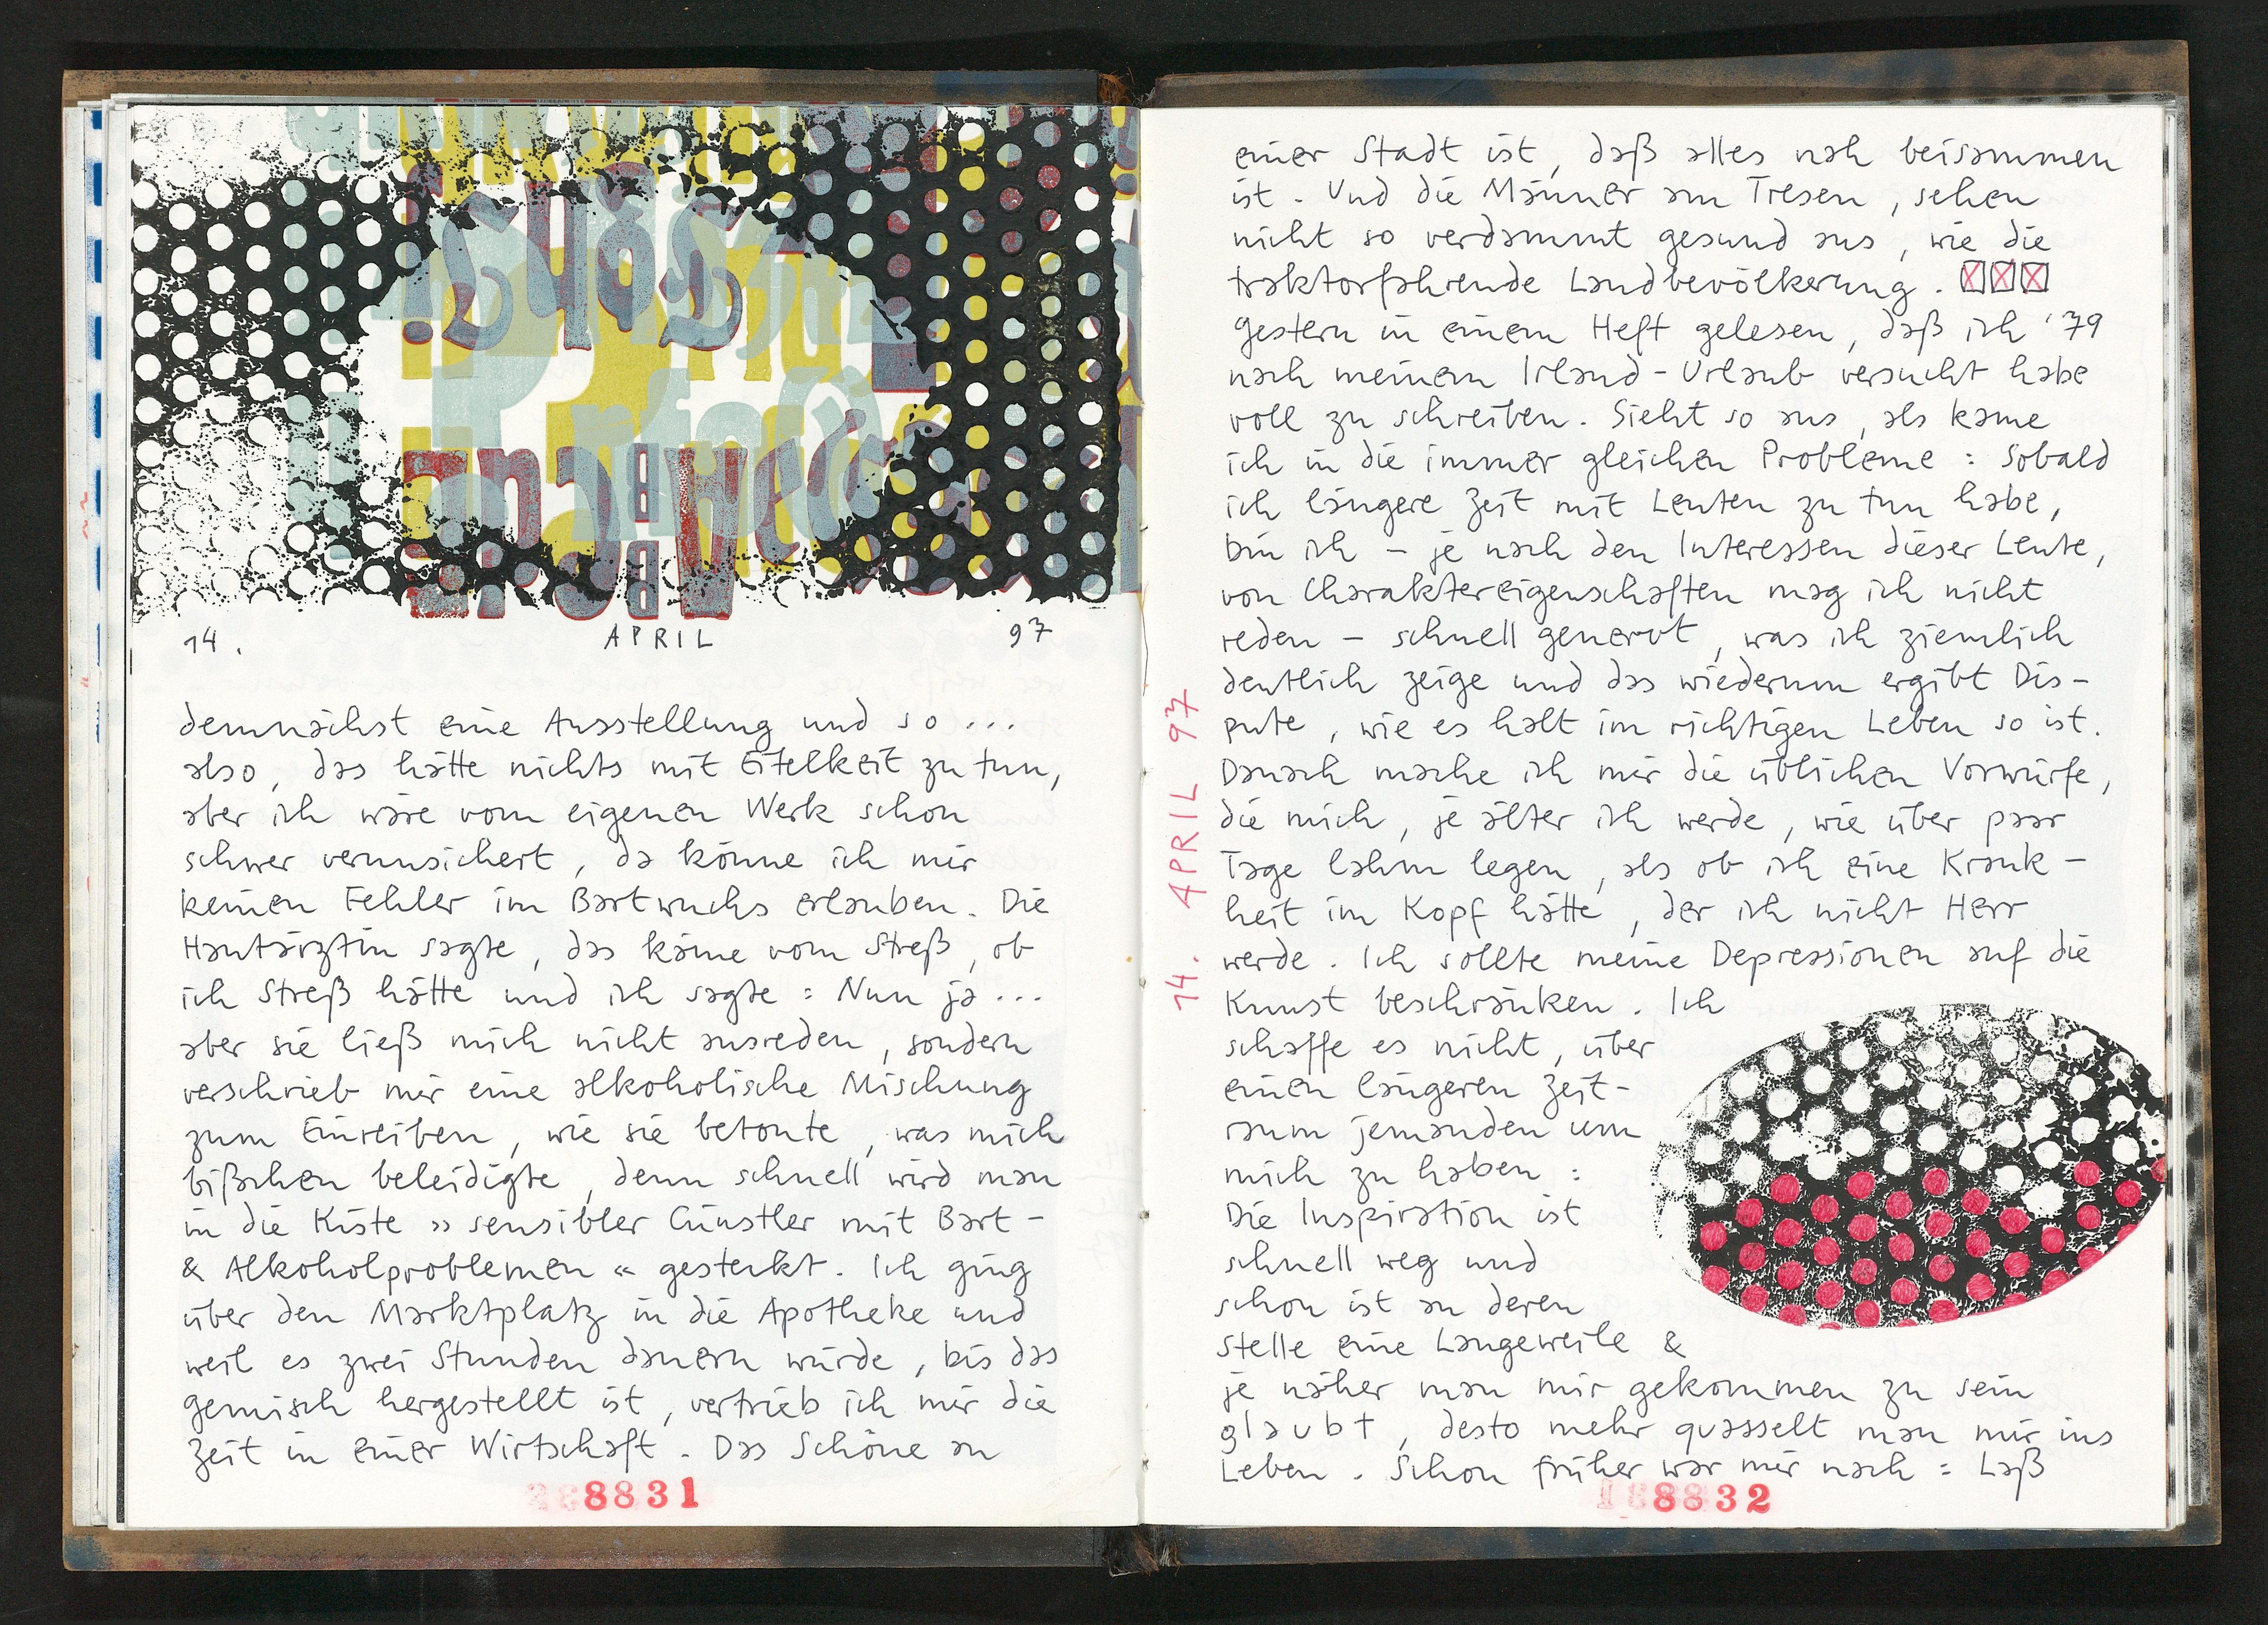 14. APRIL 97
demnächst eine Ausstellung und so ...
also, das hätte nichts mit Eitelkeit zu tun,
aber ich wäre vom eigenen Werk schon
schwer verunsichert, da könne ich mir
keinen Fehler im Bartwuchs erlauben. Die
Hautärztin sagte, das käme vom Streß, ob
ich Streß hätte und ich sagte: Nun ja ...
aber sie ließ mich nicht ausreden, sondern
verschrieb mir eine alkoholische Mischung
zum Einreiben, wie sie betonte, was mich
bißchen beleidigte, denn schnell wird man
in die Kiste »sensibler Cünstler mit Bart-
& Alkoholproblemen« gesteckt. Ich ging
über den Marktplatz in die Apotheke und
weil es zwei Stunden dauern würde, bis das
Gemisch hergestellt ist, vertrieb ich mir die
Zeit in einer Wirtschaft. Das Schöne an
8831
14. APRIL 97
einer Stadt ist, daß alles nah beisammen
ist. Und die Männer am Tresen, sehen
nicht so verdammt gesund aus, wie die
traktorfahrende Landbevölkerung.
Gestern in einem Heft gelesen, daß ich '79
nach meinem Irland-Urlaub versucht habe
voll zu schreiben. Sieht so aus, als käme
ich in die immer gleichen Probleme: Sobald
ich längere Zeit mit Leuten zu tun habe,
bin ich – je nach den Interessen dieser Leute,
von Charaktereigenschaften mag ich nicht
reden – schnell genervt, was ich ziemlich
deutlich zeige und das wiederum ergibt Dis-
pute, wie es halt im richtigen Leben so ist.
Danach mache ich mir die üblichen Vorwürfe,
die mich, je älter ich werde, wie über paar
Tage lahm legen, als ob ich eine Krank-
heit im Kopf hätte, der ich nicht Herr
werde. Ich sollte meine Depressionen auf die
Kunst beschränken. Ich
schaffe es nicht, über
einen längeren Zeit-
raum jemanden um
mich zu haben:
Die Inspiration ist
schnell weg und
schon ist an deren
Stelle eine Langeweile &
je näher man mir gekommen zu sein
glaubt, desto mehr quasselt man mir ins
Leben. Schon früher war mir nach: Laß
8832